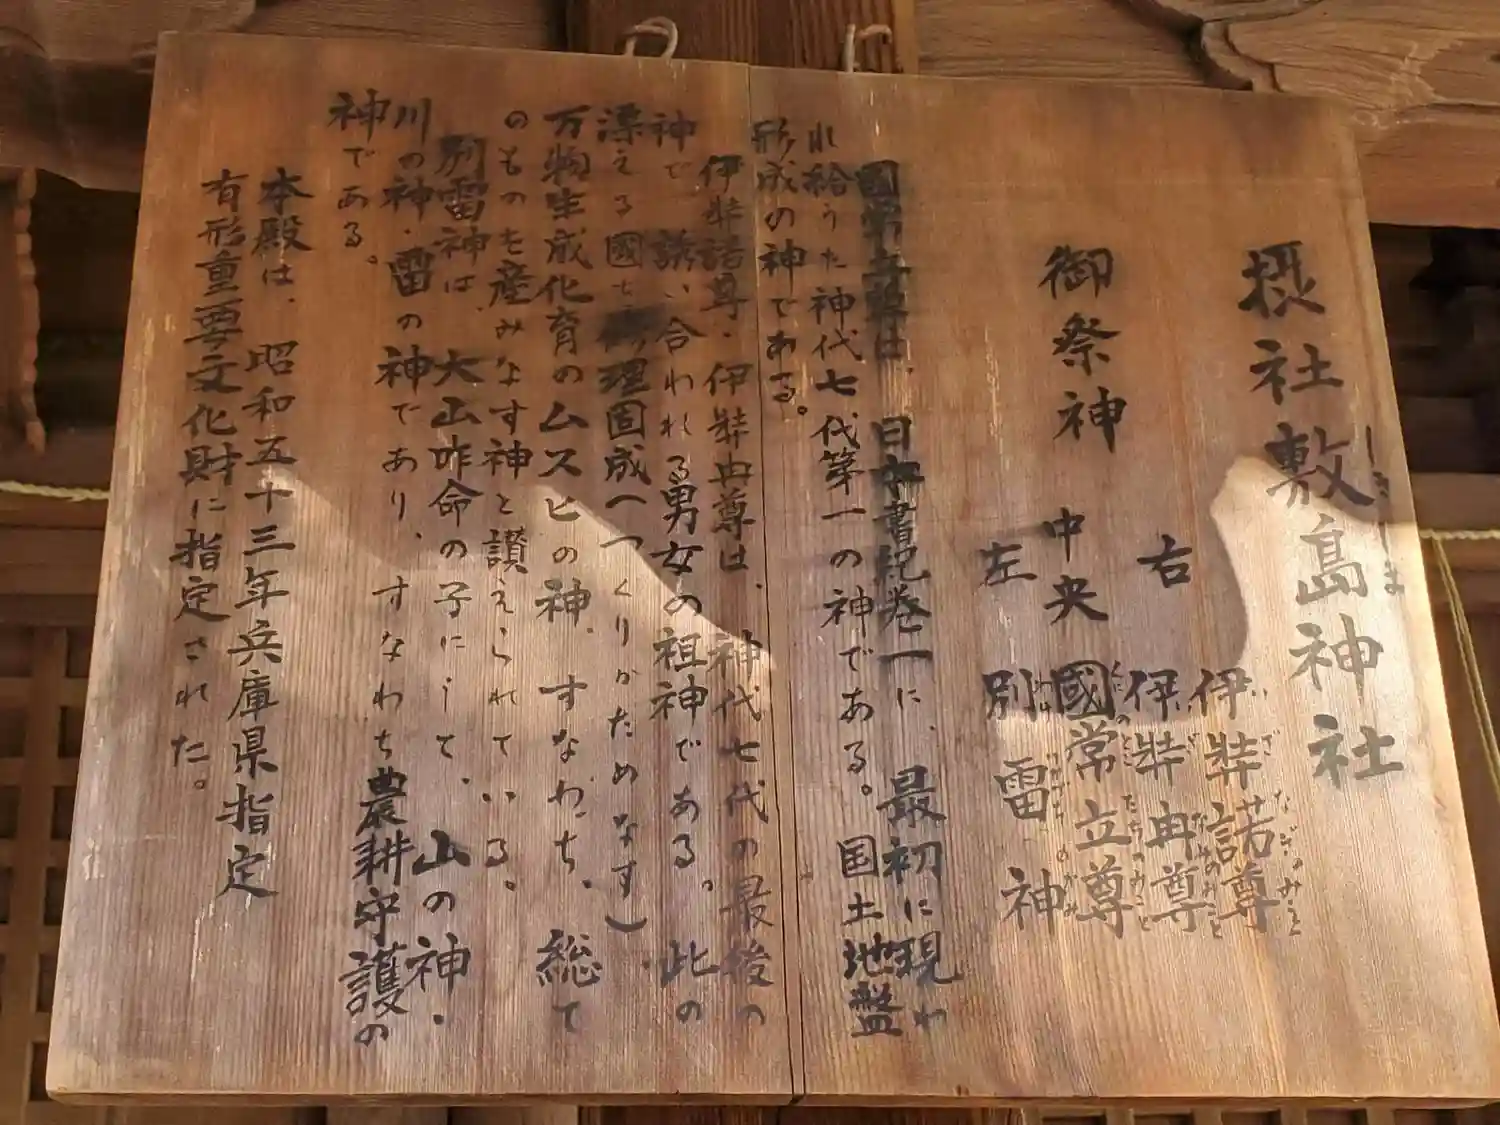 摂社敷島神社
しきしま
御祭神
右 伊弉諾尊
いざなぎのみこと
伊弉冉尊
いざなみのみこと
中央 國常立尊
くにのとこたちのみこと
左 別雷神
わけいかづちのかみ
國常立尊は、日本書紀巻一に、最初に現わ
れ給うた神代七代第一の神である。国土地盤
形成の神である。
伊弉諾尊・伊弉冉尊は、神代七代の最後の
神で、誘い合われる男女の祖神である。此の
漂える國を修理固成(つくりかためなす)
万物生成化育のムスビの神、すなわち、総て
のものを産みなす神と讃えられている。
別雷神は、大山咋命の子にして、山の神・
川の神・雷の神であり、すなわち農耕守護の
神である。
本殿は、昭和五十三年兵庫県指定
有形重要文化財に指定された。